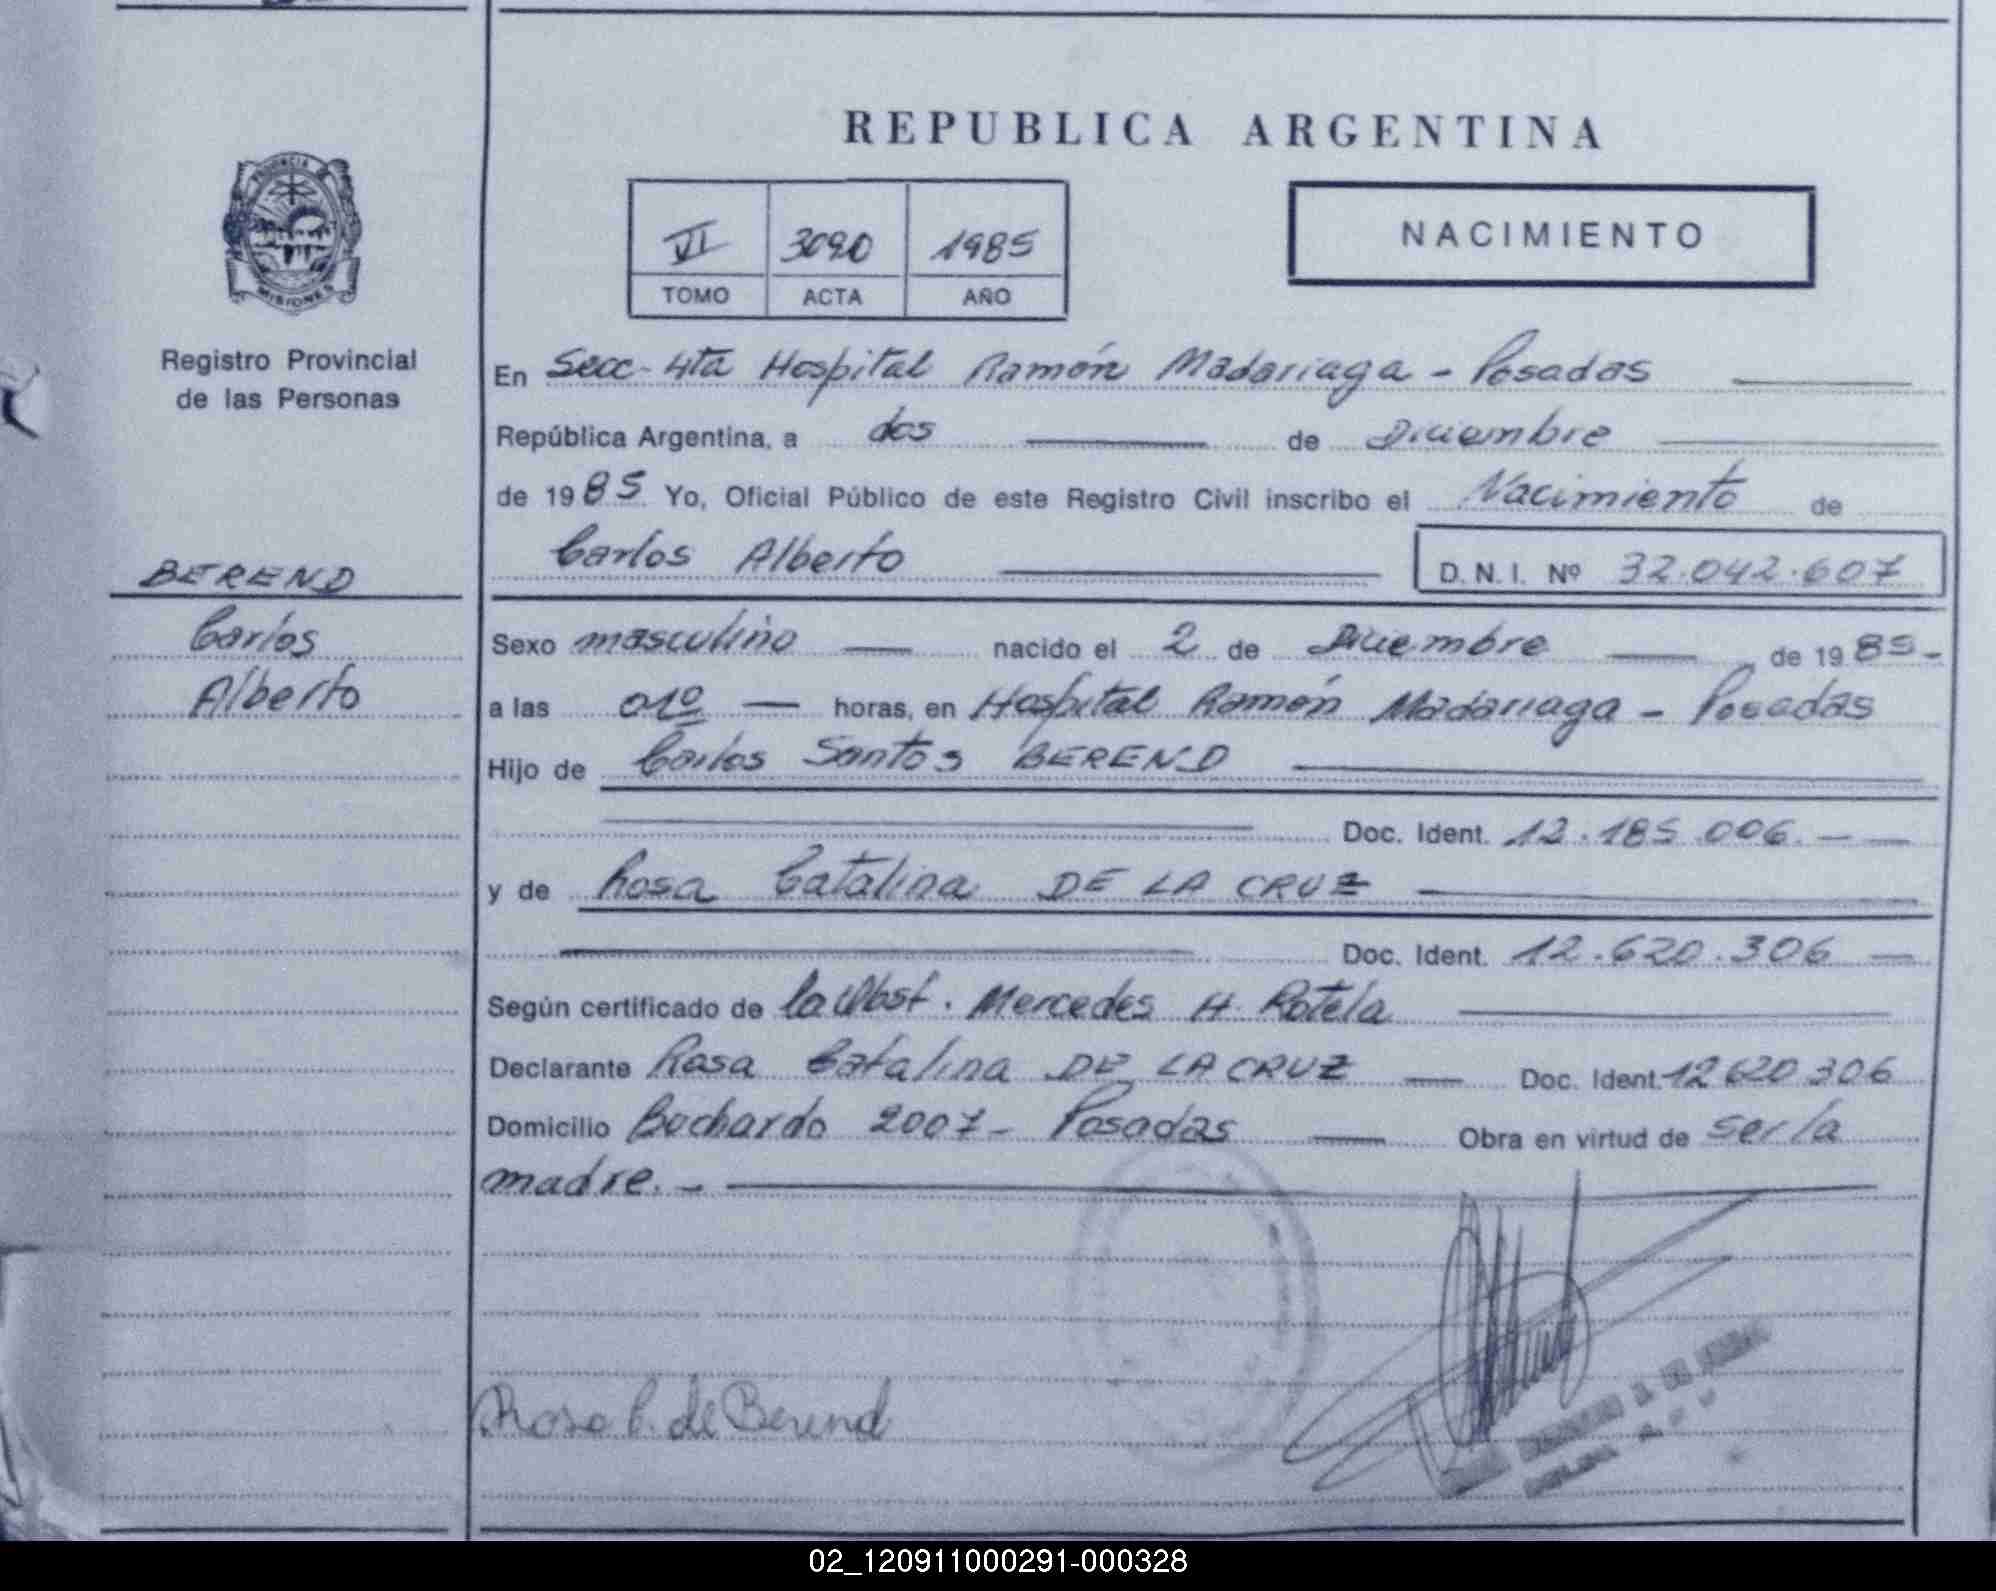 REPUBLICA ARGENTINA
PROVINCIA DE
MISIONES
Registro Provincial
de las Personas
VI 3090 1985
TOMO ACTA AÑO
NACIMIENTO
BEREND
Carlos
Alberto
En Secc- 4ta Hospital Ramón Madariaga - Posadas
República Argentina, a dos de Diciembre
de 1985 Yo, Oficial Público de este Registro Civil inscribo el Nacimiento de
Carlos Alberto D.N.I. Nº 32.042.607
Sexo masculino nacido el 2 de Diciembre de 1985-
a las 01º horas, en Hospital Ramón Madariaga - Posadas
Hijo de Carlos Santos BEREND
Doc. Ident. 12.185.006.
y de Rosa Catalina DE LA CRUZ
Doc. Ident. 12.620.306
Según certificado de la Obst. Mercedes H. Rotela
Declarante Rosa Catalina DE LA CRUZ Doc. Ident. 12620306
Domicilio Bochardo 2007- Posadas Obra en virtud de ser la
madre. -
Rosa C. de Berend
02_120911000291-000328